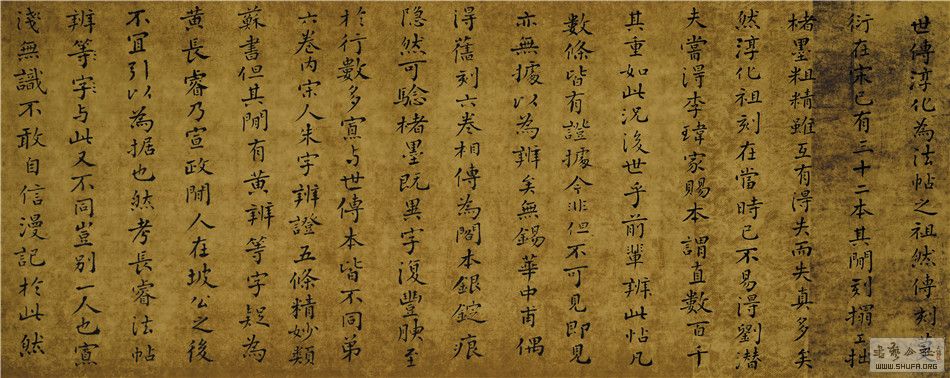 世傳淳化為法帖之祖然傳刻
衍在宋已有三十二本其間刻搨工拙
楮墨粗精雖互有得失而失真多矣
然淳化祖刻在當時已不易得劉潛
夫嘗得李瑋家賜本謂直數百千
其重如此況後世乎前輩辨此帖凡
數條皆有證據今非但不可見即見
亦無據以為辨矣無錫華中甫偶
得舊刻六卷相傳為閣本銀錠痕
隐然可驗楮墨既異字復豐腴至
於行數多寡与世傳本皆不同第
六卷內宋人朱字辨證五條精妙類
蘇書但其間有黃辨等字疑為
黃長睿乃宣政間人在坡公之後
不宜引以為据也然考長睿法帖
辨等字与此又不同豈別一人也寡
淺無識不敢自信漫記於此然
WWW.SHUFA.ORG